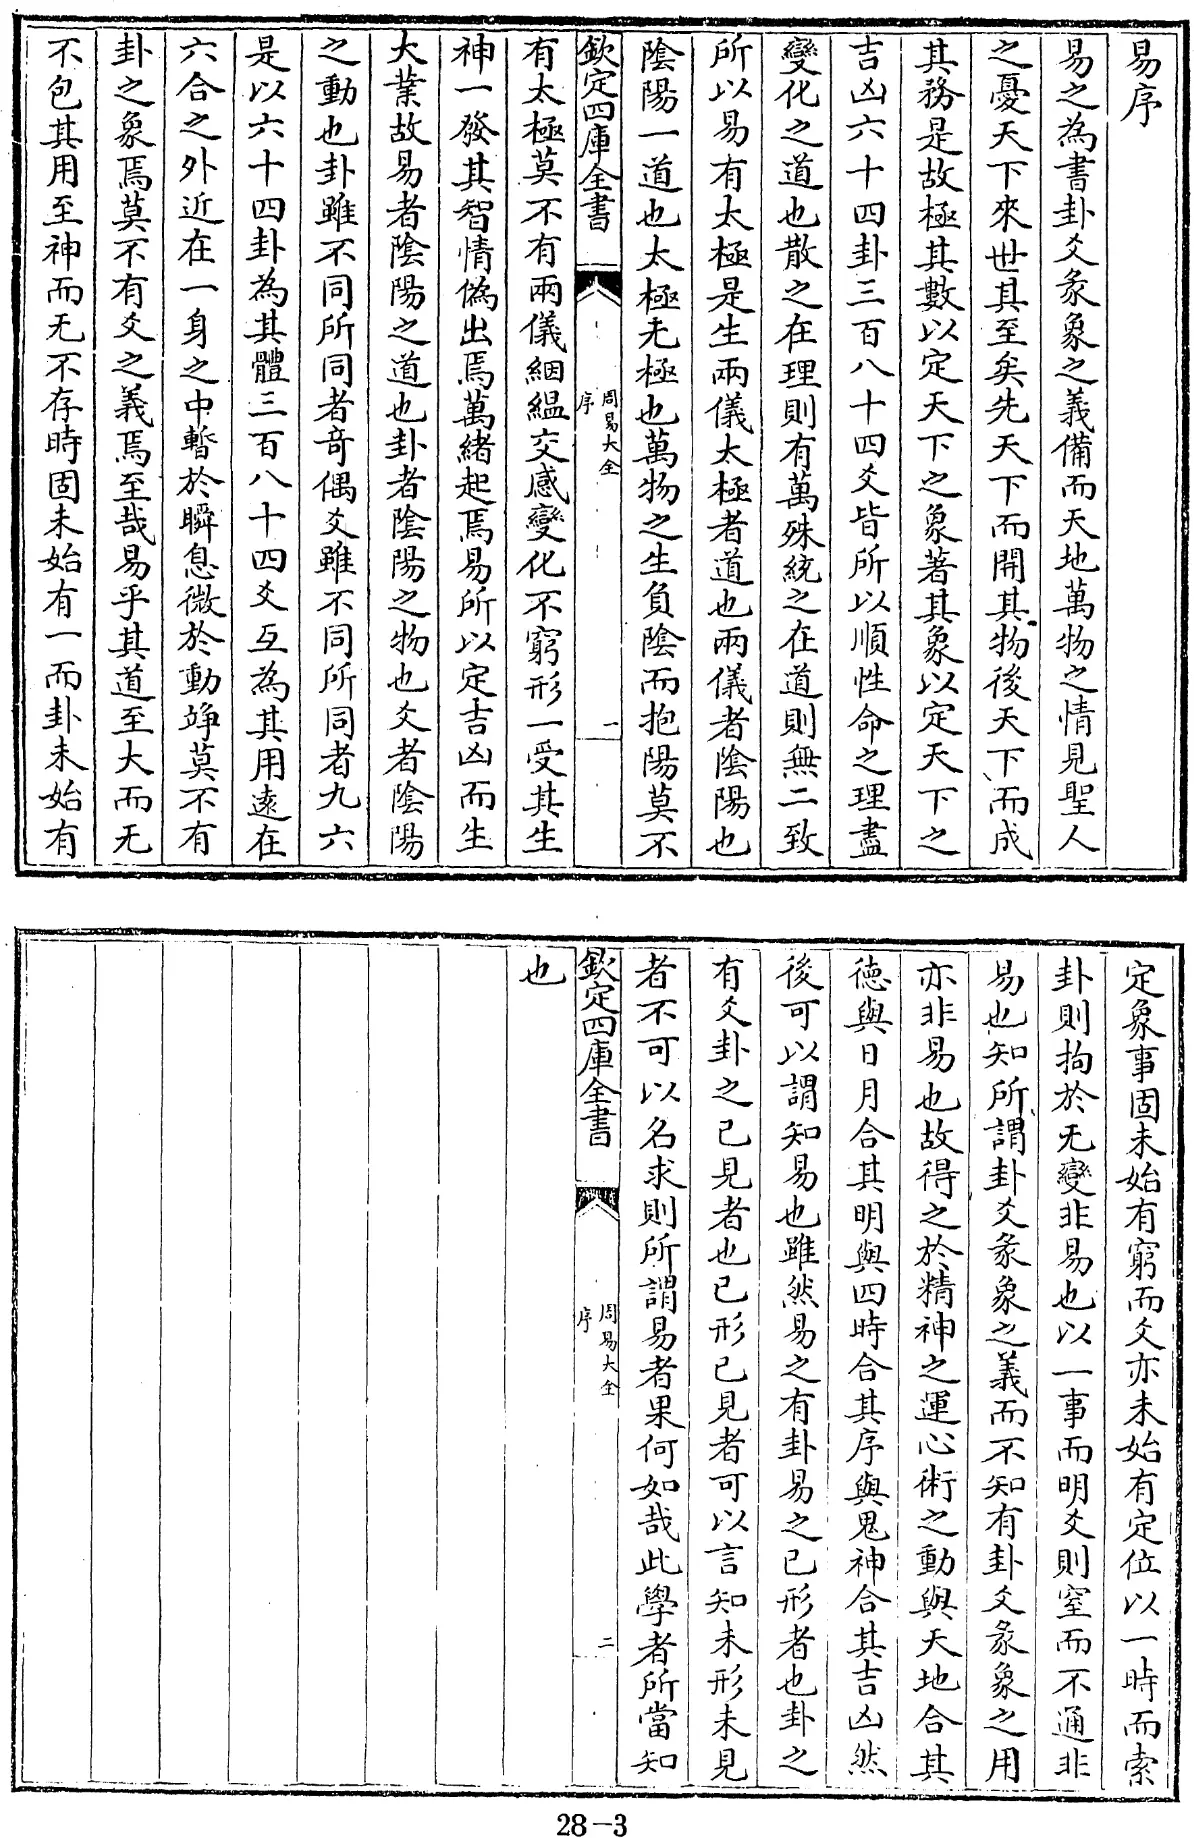 易序
易之為書卦爻彖象之義備而天地萬物之情見聖人
之憂天下來世其至矣先天下而開其物後天下而成
其務是故極其數以定天下之象著其象以定天下之
吉凶六十四卦三百八十四爻皆所以順性命之理盡
變化之道也散之在理則有萬殊統之在道則無二致
所以易有太極是生兩儀太極者道也兩儀者陰陽也
陰陽一道也太極无極也萬物之生負陰而抱陽莫不
欽定四庫全書
周易大全
序
一
有太極莫不有兩儀絪縕交感變化不窮形一受其生
神一發其智情偽出焉萬緒起焉易所以定吉凶而生
大業故易者陰陽之道也卦者陰陽之物也爻者陰陽
之動也卦雖不同所同者奇偶爻雖不同所同者九六
是以六十四卦為其體三百八十四爻互為其用遠在
六合之外近在一身之中暫於瞬息微於動竫莫不有
卦之象焉莫不有爻之義焉至哉易乎其道至大而无
不包其用至神而无不存時固未始有一而卦未始有
定象事固未始有窮而爻亦未始有定位以一時而索
卦則拘於无變非易也以一事而明爻則窒而不通非
易也知所謂卦爻彖象之義而不知有卦爻彖象之用
亦非易也故得之於精神之運心術之動與天地合其
德與日月合其明與四時合其序與鬼神合其吉凶然
後可以謂知易也雖然易之有卦易之已形者也卦之
有爻卦之已見者也已形已見者可以言知未形未見
者不可以名求則所謂易者果何如哉此學者所當知
欽定四庫全書
周易大全
序
二
也
28-3